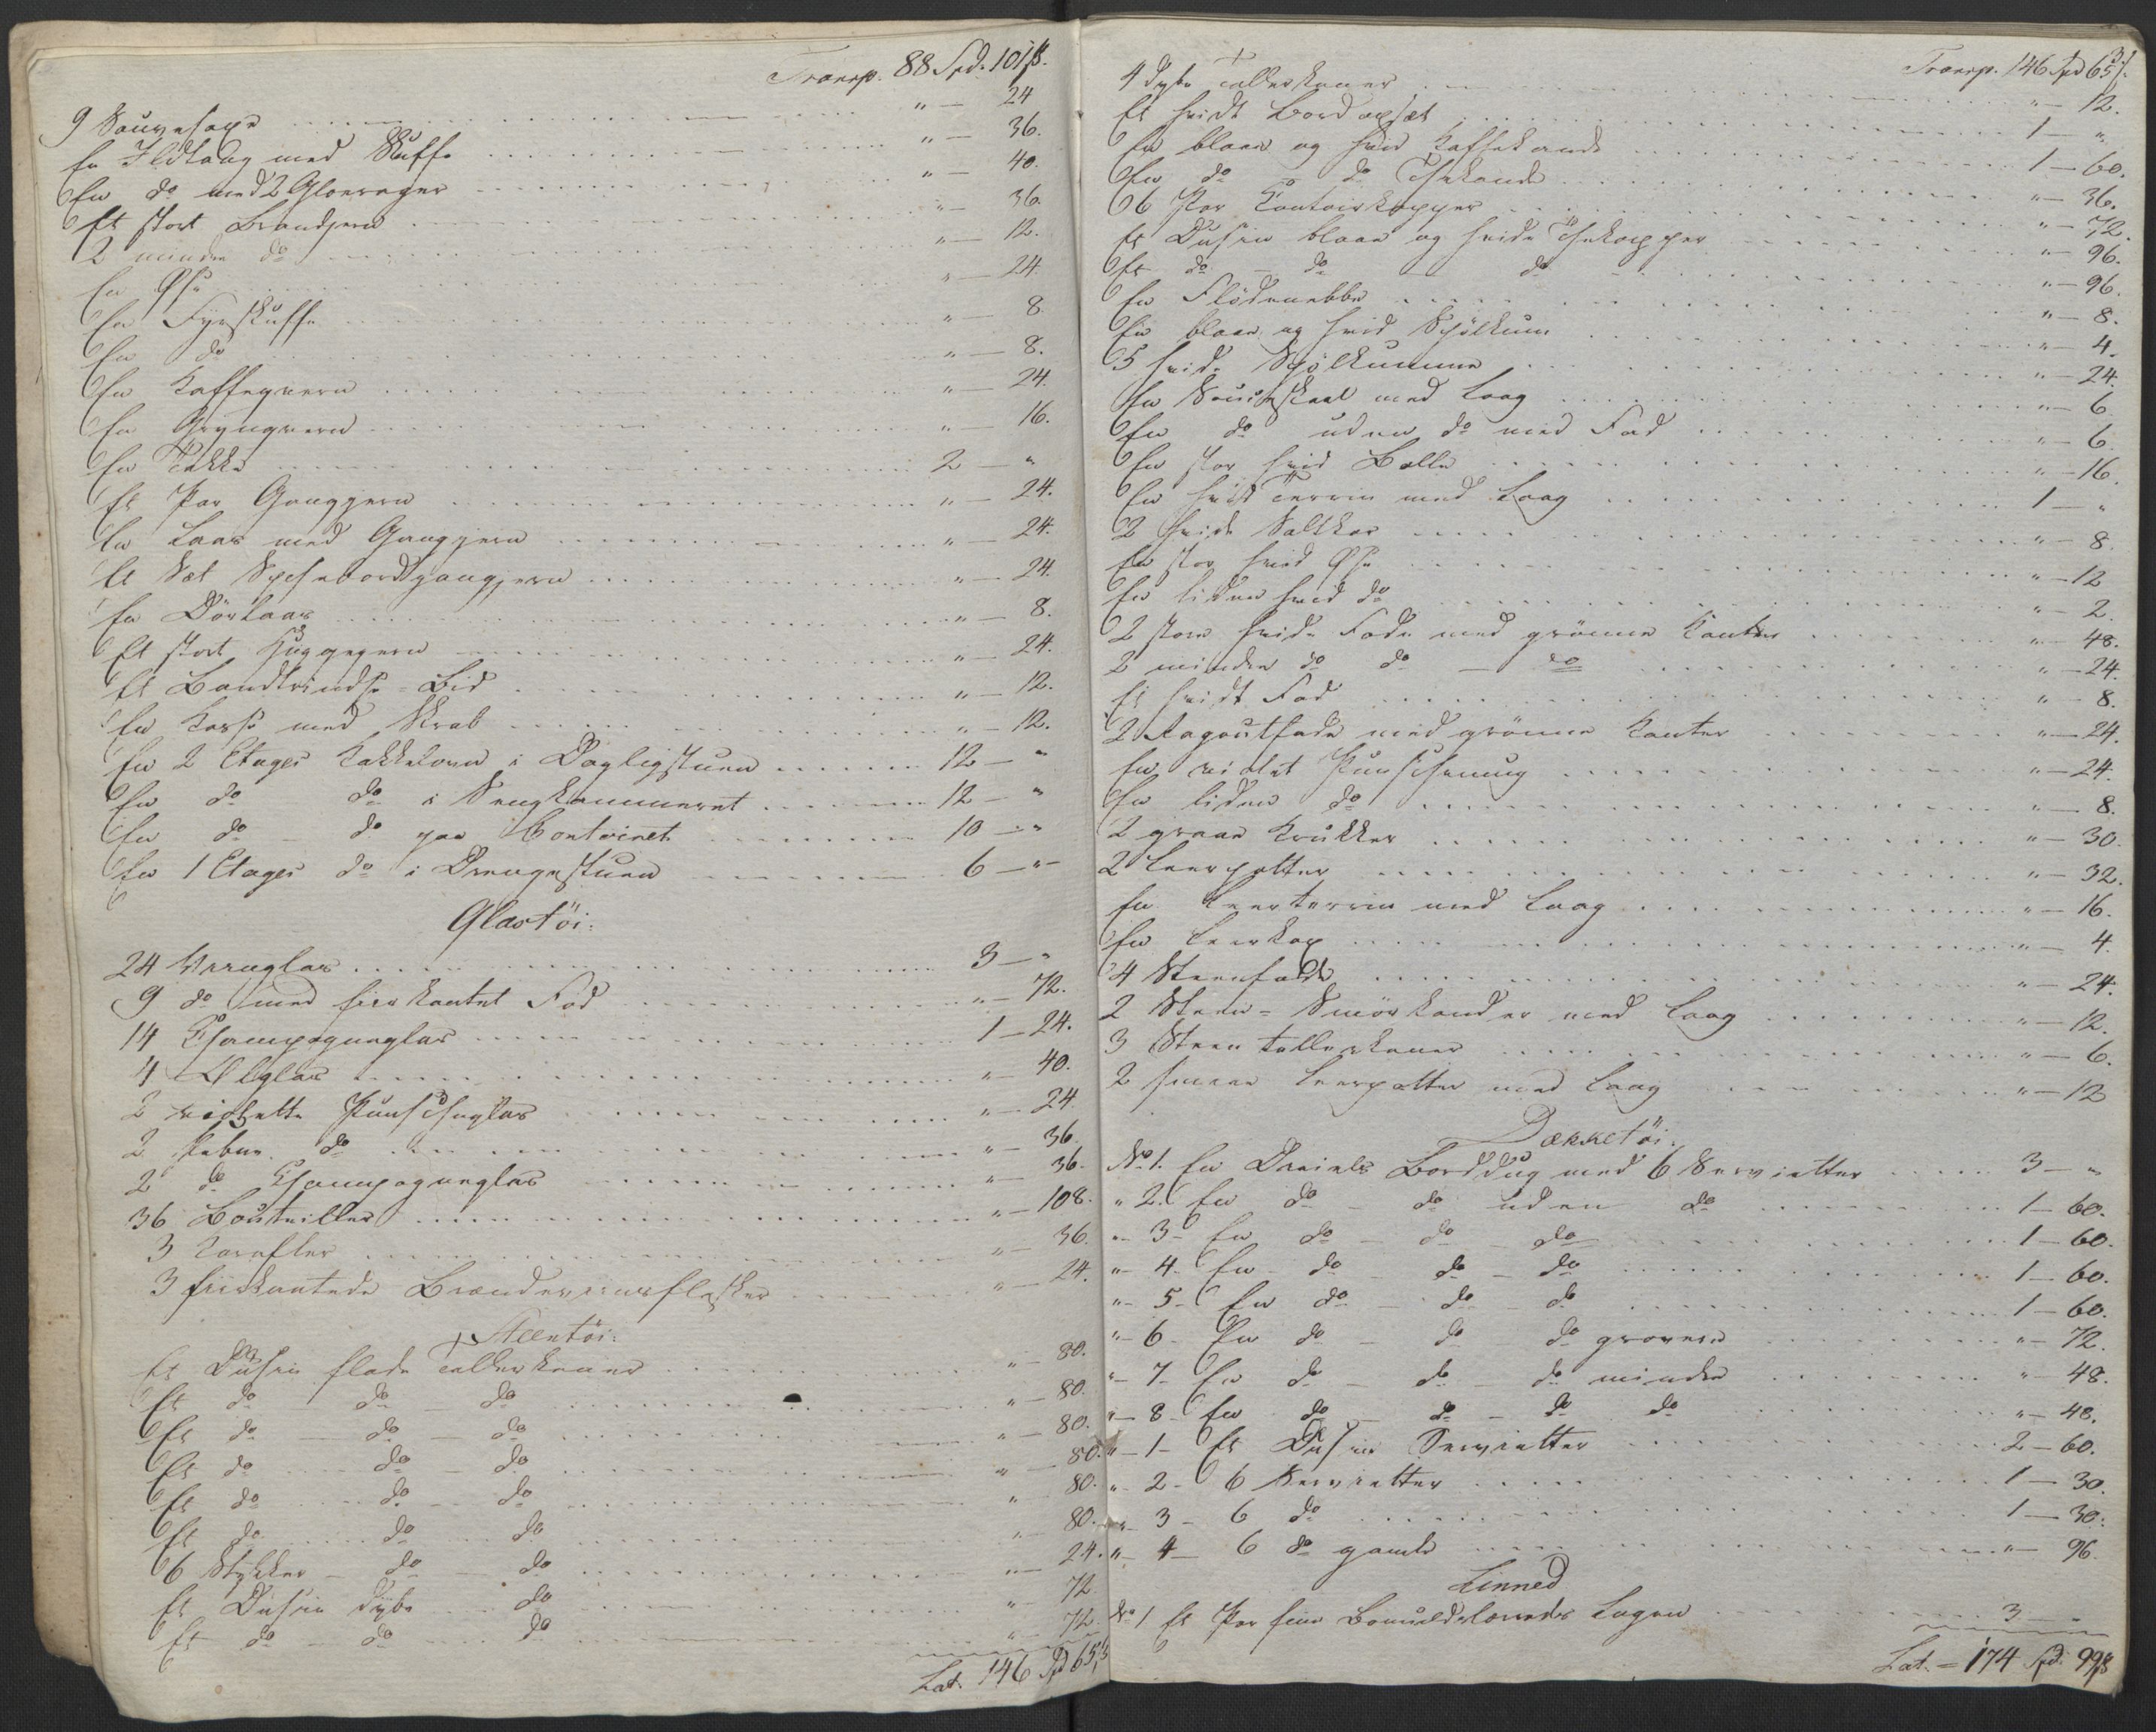 Transp. 88 Spd. 101 ß.
9 Sauesaxe " — 24
En Ildtang med Skuffe " — 36.
En do med 2 Gloerager " — 40.
Et stort Brandjern " — 36.
2 mindre do " — 12.
En Øse " — 24.
En Fyrskuffe " — 8.
En do " — 8.
En Kaffeqvern " — 24.
En Grynqvern " — 16.
En Takke 2 — "
Et Par Gangjern " — 24.
En Laas med Gangjern " — 24.
Et Sæt Spisebordsgangjern " — 24.
En Dörlaas " — 8.
Et stort Huggejern " — 24.
Et Bandtvinds-Bid " — 12.
En Kasse med Skrab " — 12.
En 2 Etages Kakkelovn i Dagligstuen 12 — "
En do do i Sengkammeret 12 — "
En do — do paa Contoiret 10 — "
En 1 Etages do i Drengestuen 6 — "
Glastöi:
24 Viinglas 3 — "
9 do med firekantet Fod " — 72.
14 Champagneglas 1 — 24.
4 Ølglas " — 40.
2 violette Punscheglas " — 24
2 do " — 36.
2 do Champagneglas " — 36.
36 Bouteiller " — 108.
3 Karafler " — 36.
3 fiirkantede Brændeviinsflasker " — 24.
Steentöi:
Et Dusin flade Tallerkener " — 80.
Et do do — do " — 80.
Et do — do — do " — 80.
Et do — do — do " — 80.
Et do — do — do " — 80.
Et do do do " — 80.
6 Stykker — do — do " — 24.
Et Dusin dybe do " — 72.
Et do — do do " — 72.
Lat. 146 Spd 65 ß
Transp. 146 Spd 65 ß.
4 dybe Tallerkener " — 12.
Et hvidt Bordopsæt 1 — "
En blaae og hvid Kaffekande 1 — 60.
En do — do Theekande " — 36.
6 Par Contoirkopper " — 72.
Et Dusin blaae og hvide Theekopper " — 96.
Et do — do — do " — 96.
En Flödenebbe " — 8.
En blaae og hvid Spölkum " — 4.
5 hvide Spölkumme " — 24.
En Sauceskaal med Laag " — 6.
En do uden do med Fad " — 6.
En stor hvid Bolle " — 16.
En hvid Terrin med Laag 1 — "
2 hvide Saltkar " — 8.
En stor hvid Øse " — 12
En liden hvid do " — 2.
2 store hvide Fade med grönne Kanter " — 48.
2 mindre do do — do " — 24.
Et hvidt Fad " — 8.
2 Ragoutfade med grönne Kanter " — 24.
En violet Punschemug " — 24.
En liden do " — 8.
2 graae Krukker " — 30.
2 Leerpotter " — 32.
En Leerterrin med Laag " — 16.
En Leerkop " — 4.
4 Steenfade " — 24.
2 Steen-Smörkander med Laag " — 12.
3 Steentallerkener " — 6.
2 smaae Leerpotter med Laag " — 12
Dækketöi.
No 1. En Dreiels Borddug med 6 Servietter 3 — "
" 2. En do — do uden do 1 — 60.
" 3 — En do — do — do 1 — 60.
" 4 — En do — do — do 1 — 60.
" 5 — En do — do — do 1 — 60.
" 6 — En do — do do grovere " — 72.
" 7 — En do — do — do mindre " — 48.
" 8 — En do — do — do do " — 48.
" 1 — Et Dusin Servietter 2 — 60.
" 2 — 6 Servietter 1 — 30.
" 3 — 6 do 1 — 30.
" 4 — 6 do gamle " — 96.
Linned
No 1 Et Par fine Bomuldslærreds Lagen 3 — "
Lat. = 174 Spd. 99 ß